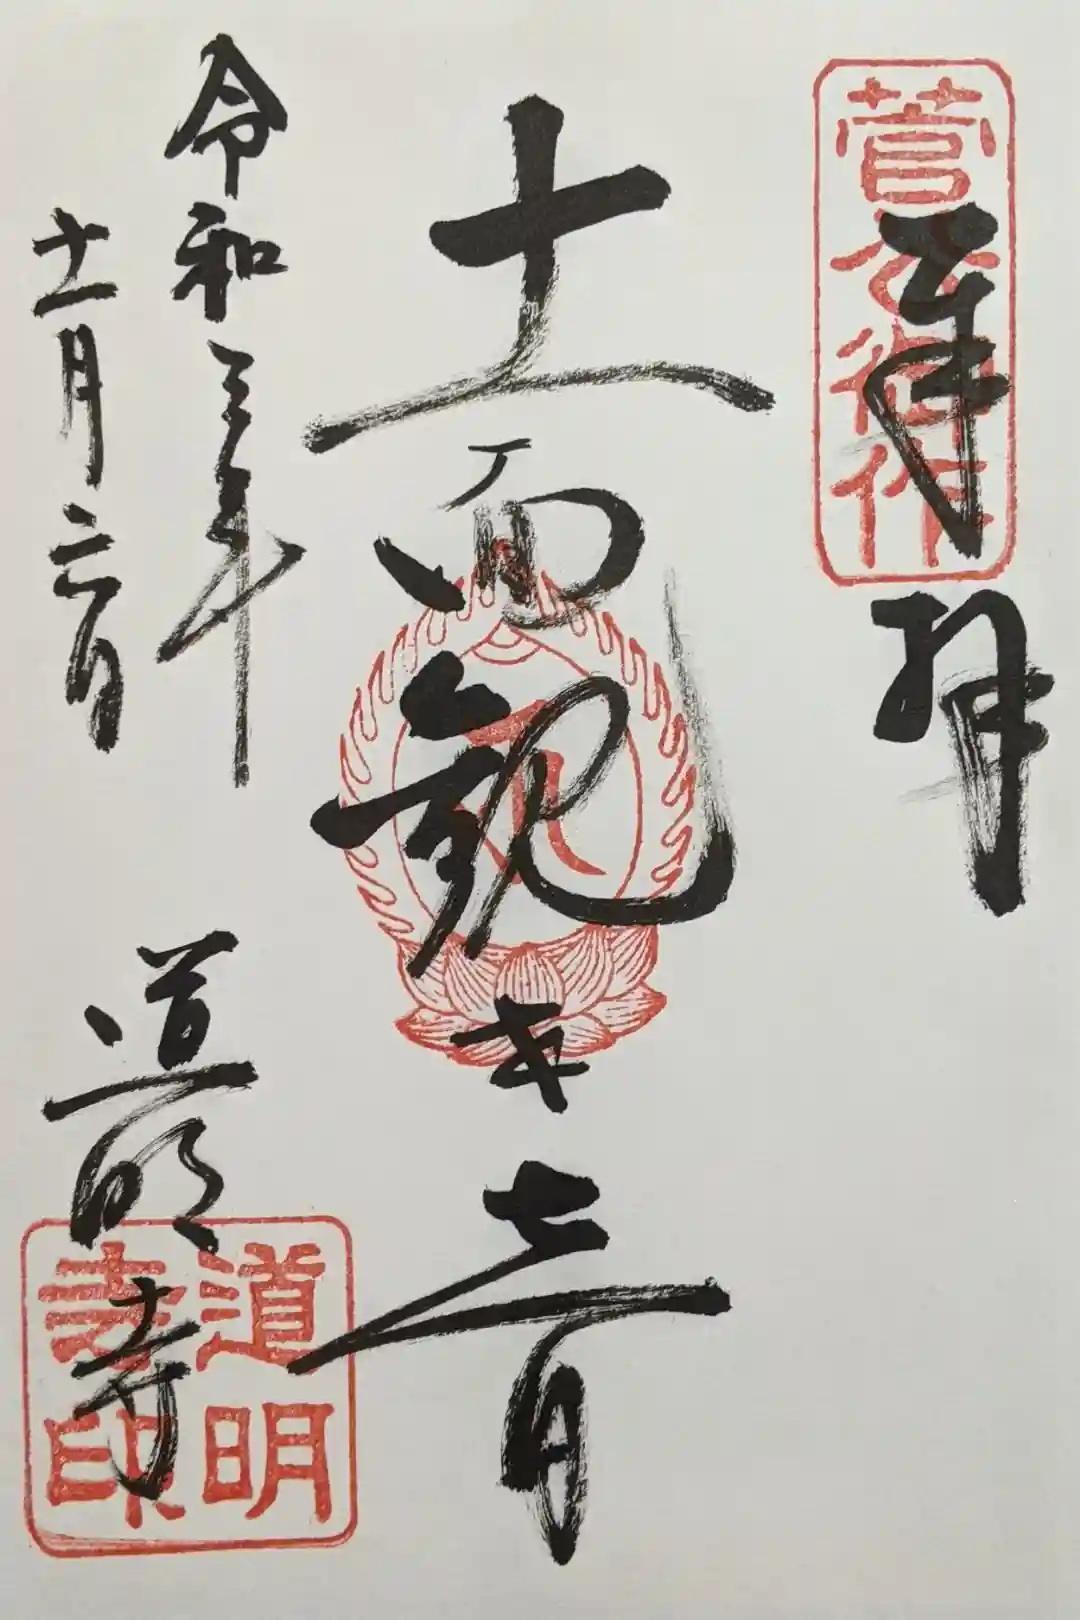 奉拝
菅公御作
十一面観世音
令和三年
十一月六日
道明寺
道明
寺印